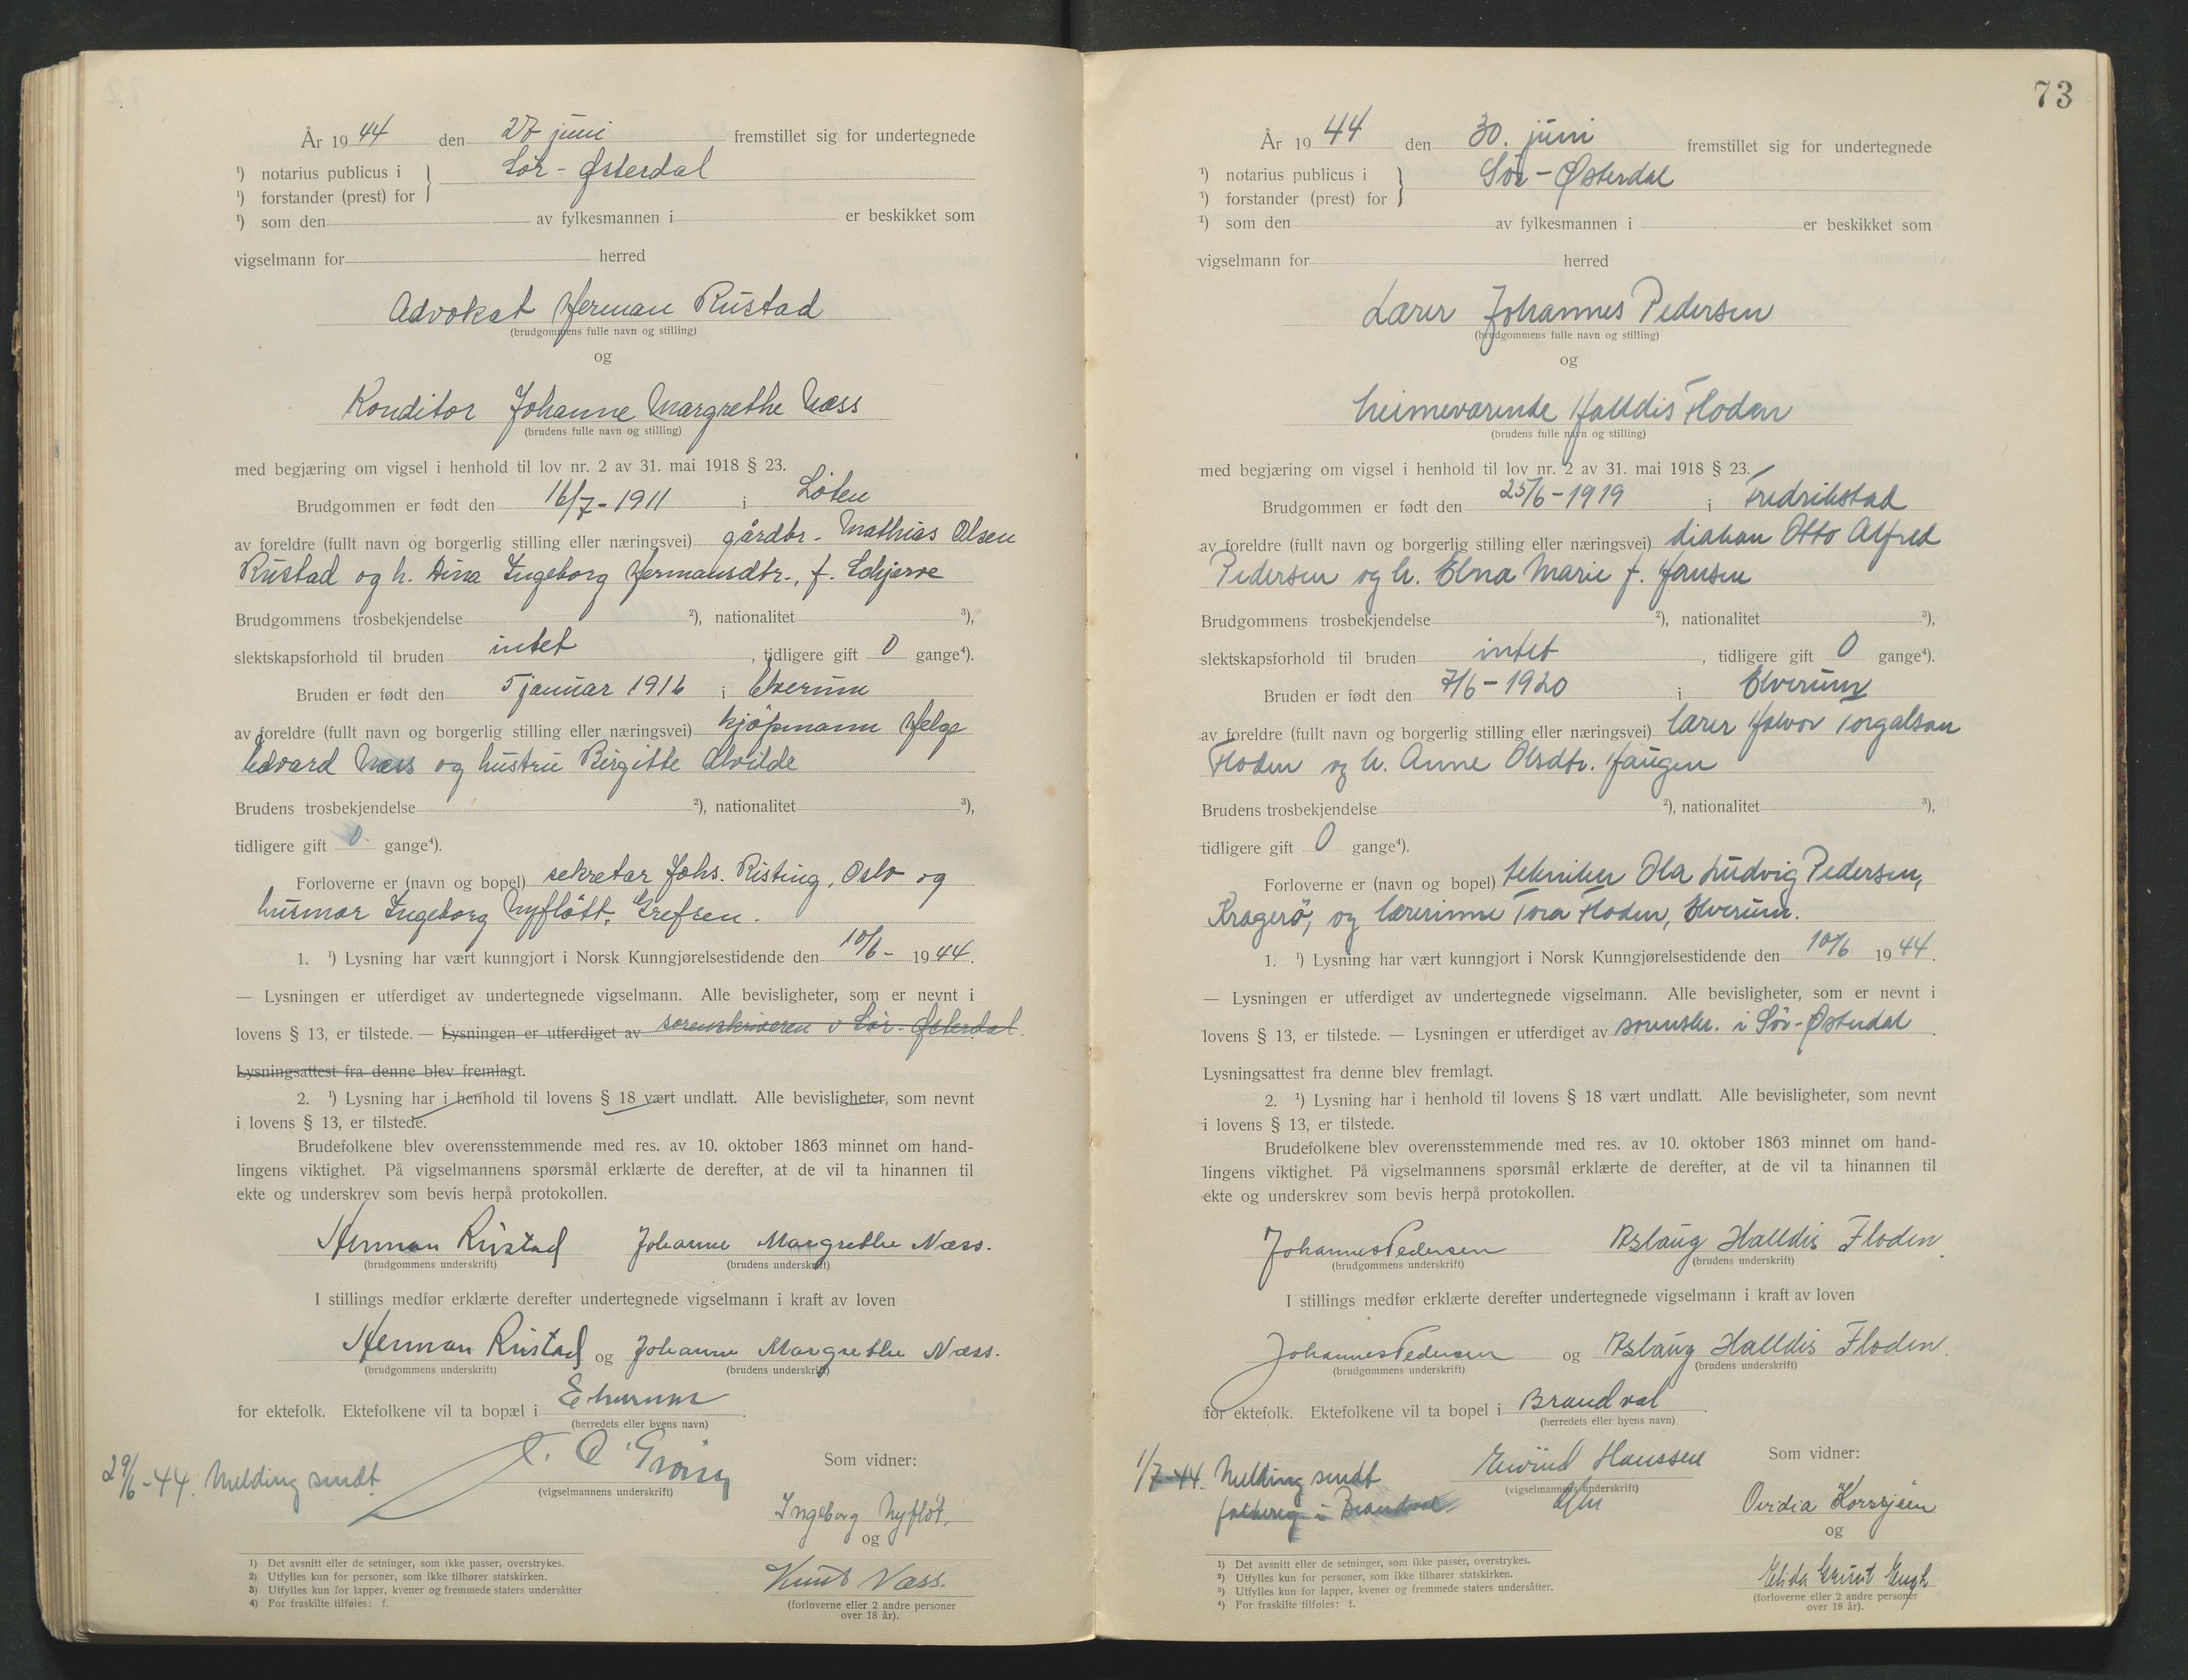 År 19 44 den 27 juni fremstillet sig for undertegnede
¹) notarius publicus i } Sör-Østerdal
¹) forstander (prest) for
¹) som den av fylkesmannen i er beskikket som
vigselmann for herred
Advokat Herman Rustad
(brudgommens fulle navn og stilling)
og
Konditor Johanne Margrethe Næss
(brudens fulle navn og stilling)
med begjæring om vigsel i henhold til lov nr. 2 av 31. mai 1918 § 23.
Brudgommen er født den 16/7-1911 i Löten
av foreldre (fullt navn og borgerlig stilling eller næringsvei) gårdbr. Mathias Olsen
Rustad og h. Dina Ingeborg Hermansdtr., f. Schjerve
Brudgommens trosbekjendelse ²), nationalitet ³),
slektskapsforhold til bruden intet, tidligere gift 0 gange⁴).
Bruden er født den 5 januar 1916 i Elverum
av foreldre (fullt navn og borgerlig stilling eller næringsvei) kjöpmann Helge
Edvard Næss og hustru Birgitte Alvilde
Brudens trosbekjendelse ²), nationalitet ³),
tidligere gift 0 gange⁴).
Forloverne er (navn og bopel) sekretær Johs. Risting, Oslo og
husmor Ingeborg Nyflött, Grefsen.
1. ¹) Lysning har vært kunngjort i Norsk Kunngjørelsestidende den 10/6- 19 44.
— Lysningen er utferdiget av undertegnede vigselmann. Alle bevisligheter, som er nevnt i
lovens § 13, er tilstede. — Lysningen er utferdiget av sorenskriveren i Sör-Østerdal.
Lysningsattest fra denne blev fremlagt.
2. ¹) Lysning har i henhold til lovens § 18 vært undlatt. Alle bevisligheter, som nevnt
i lovens § 13, er tilstede.
Brudefolkene blev overensstemmende med res. av 10. oktober 1863 minnet om hand-
lingens viktighet. På vigselmannens spørsmål erklærte de derefter, at de vil ta hinannen til
ekte og underskrev som bevis herpå protokollen.
Herman Rustad Johanne Margrethe Næss.
(brudgommens underskrift) (brudens underskrift)
I stillings medfør erklærte derefter undertegnede vigselmann i kraft av loven
Herman Rustad og Johanne Margrethe Næss.
(brudgommens underskrift) (brudens underskrift)
for ektefolk. Ektefolkene vil ta bopæl i Elverum.
(herredets eller byens navn)
29/6-44. Melding sendt.
(vigselmannens underskrift)
Som vidner:
Ingeborg Nyflöt.
og
Knut Næss.
(forloverne eller 2 andre personer
over 18 år).
1) Det avsnitt eller de setninger, som ikke passer, overstrykes.
2) Utfylles kun for personer, som ikke tilhører statskirken.
3) Utfylles kun for lapper, kvener og fremmede staters undersåtter
4) For fraskilte tilføies: f.
73
År 19 44 den 30. juni fremstillet sig for undertegnede
¹) notarius publicus i } Sör-Østerdal
¹) forstander (prest) for
¹) som den av fylkesmannen i er beskikket som
vigselmann for herred
Lærer Johannes Pedersen
(brudgommens fulle navn og stilling)
og
heimeværende Halldis Floden
(brudens fulle navn og stilling)
med begjæring om vigsel i henhold til lov nr. 2 av 31. mai 1918 § 23.
Brudgommen er født den 25/6-1919 i Fredrikstad
av foreldre (fullt navn og borgerlig stilling eller næringsvei) diakon Otto Alfred
Pedersen og h. Elna Marie f. Hansen
Brudgommens trosbekjendelse ²), nationalitet ³),
slektskapsforhold til bruden intet, tidligere gift 0 gange⁴).
Bruden er født den 7/6-1920 i Elverum
av foreldre (fullt navn og borgerlig stilling eller næringsvei) lærer Halvor Torgalsen
Floden og h. Anne Olsdtr. Haugen
Brudens trosbekjendelse ²), nationalitet ³),
tidligere gift 0 gange⁴).
Forloverne er (navn og bopel) tekniker Ola Ludvig Pedersen,
Kragerö, og lærerinne Tora Floden, Elverum.
1. ¹) Lysning har vært kunngjort i Norsk Kunngjørelsestidende den 10/6 19 44.
— Lysningen er utferdiget av undertegnede vigselmann. Alle bevisligheter, som er nevnt i
lovens § 13, er tilstede. — Lysningen er utferdiget av sorenskr. i Sör-Østerdal.
Lysningsattest fra denne blev fremlagt.
2. ¹) Lysning har i henhold til lovens § 18 vært undlatt. Alle bevisligheter, som nevnt
i lovens § 13, er tilstede.
Brudefolkene blev overensstemmende med res. av 10. oktober 1863 minnet om hand-
lingens viktighet. På vigselmannens spørsmål erklærte de derefter, at de vil ta hinannen til
ekte og underskrev som bevis herpå protokollen.
Johannes Pedersen Aslaug Halldis Floden.
(brudgommens underskrift) (brudens underskrift)
I stillings medfør erklærte derefter undertegnede vigselmann i kraft av loven
Johannes Pedersen og Aslaug Halldis Floden.
(brudgommens underskrift) (brudens underskrift)
for ektefolk. Ektefolkene vil ta bopel i Brandval.
(herredets eller byens navn)
1/7-44. Melding sendt
folkereg. i Brandval
Eivind Hanssen
(vigselmannens underskrift)
Som vidner:
Ovidia Korssjøen
og
Elida Engh
(forloverne eller 2 andre personer
over 18 år).
1) Det avsnitt eller de setninger, som ikke passer, overstrykes.
2) Utfylles kun for personer, som ikke tilhører statskirken.
3) Utfylles kun for lapper, kvener og fremmede staters undersåtter.
4) For fraskilte tilføies: f.